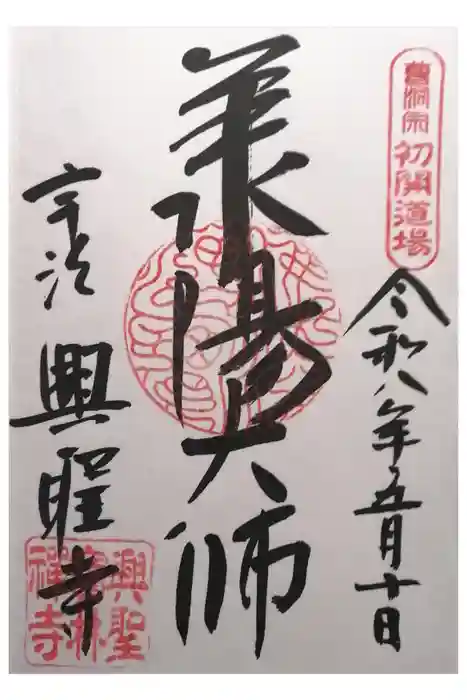 曹洞宗初開道場
令和八年五月十日
承陽大師
宇治
興聖寺
興聖
寶林
禪寺